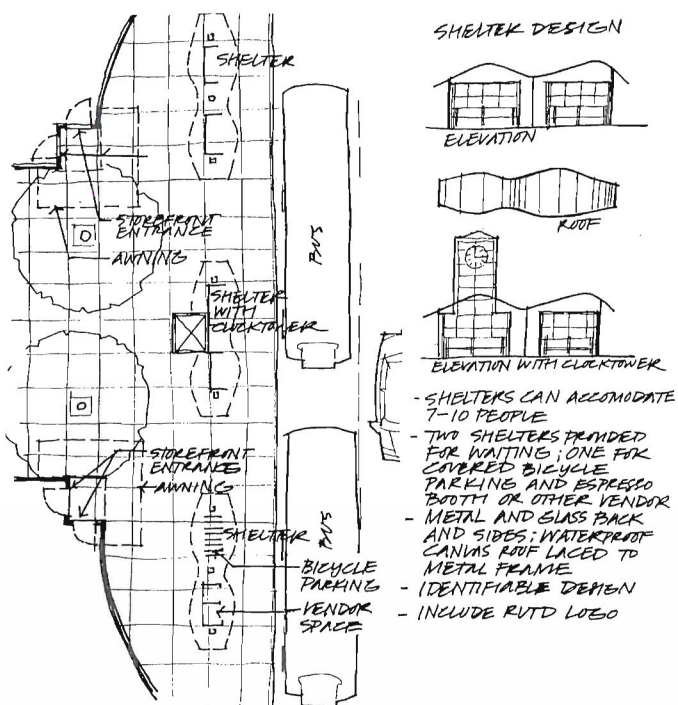 SHELTER
STOREFRONT
ENTRANCE
AWNING
BUS
SHELTER
WITH
CLOCKTOWER
STOREFRONT
ENTRANCE
AWNING
SHELTER
BUS
BICYCLE
PARKING
VENDOR
SPACE
SHELTER DESIGN
ELEVATION
ROOF
ELEVATION WITH CLOCKTOWER
- SHELTERS CAN ACCOMODATE
7-10 PEOPLE
- TWO SHELTERS PROVIDED
FOR WAITING; ONE FOR
COVERED BICYCLE
PARKING AND ESPRESSO
BOOTH OR OTHER VENDOR
- METAL AND GLASS BACK
AND SIDES; WATERPROOF
CANVAS ROOF LACED TO
METAL FRAME
- IDENTIFIABLE DESIGN
- INCLUDE RVTD LOGO